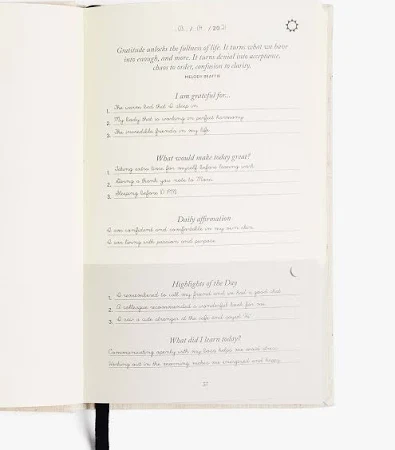 Gratitude unlocks the fullness of life. It turns what we have
into enough, and more. It turns denial into acceptance,
chaos to order, confusion to clarity.
MELODY BEATTIE
I am grateful for...
1. The warm bed that I sleep in
2. My body that is working in perfect harmony
3. The incredible friends in my life
What would make today great?
1. Taking extra time for myself before leaving work
2. Writing a thank you note to Mom
3. Sleeping before 11 PM
Daily affirmation
I am confident and comfortable in my own skin
I am living with passion and purpose
Highlights of the Day
1. I remembered to call my friend and we had a good chat
2. A colleague recommended a wonderful book for me
3. I saw a cute stranger at the cafe and said Hi
What did I learn today?
Communicating openly with my boss helps me
Working out in the morning makes me energized and happy